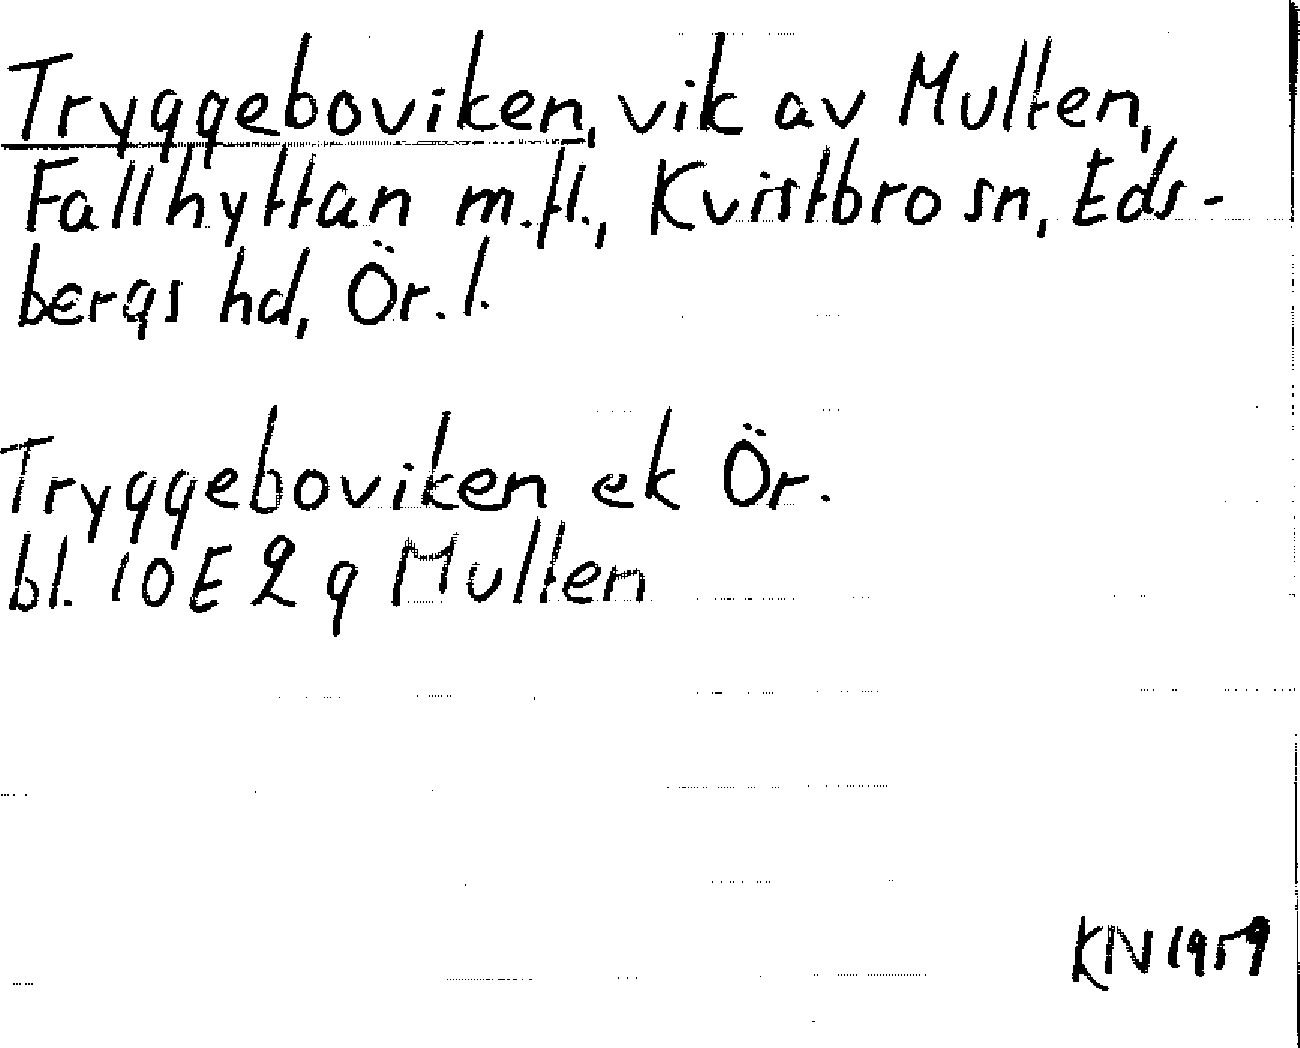 Tryggeboviken, vik av Multen,
Fallhyttan m.fl., Kvistbro sn, Eds-
bergs hd, Ör. l.
Tryggeboviken ek Ör.
bl. 10E 2 g Multen
KN 1959